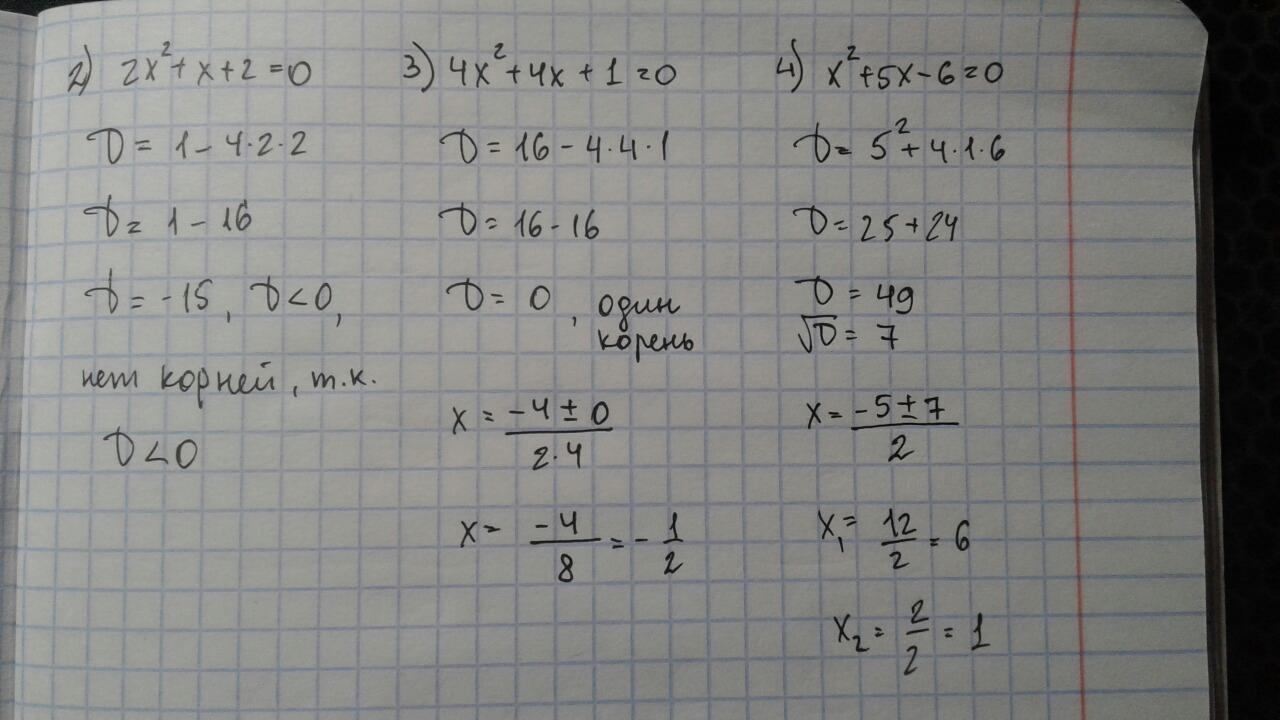 2) 2x²+x+2=0
D = 1-4·2·2
D = 1-16
D = -15, D<0,
нет корней, т.к.
D<0
3) 4x²+4x+1=0
D = 16-4·4·1
D = 16-16
D = 0, один
корень
x = (-4±0)/(2·4)
x = -4/8 = -1/2
4) x²+5x-6=0
D = 5²+4·1·6
D = 25+24
D = 49
√D = 7
x = (-5±7)/2
x₁ = 12/2 = 6
x₂ = 2/2 = 1